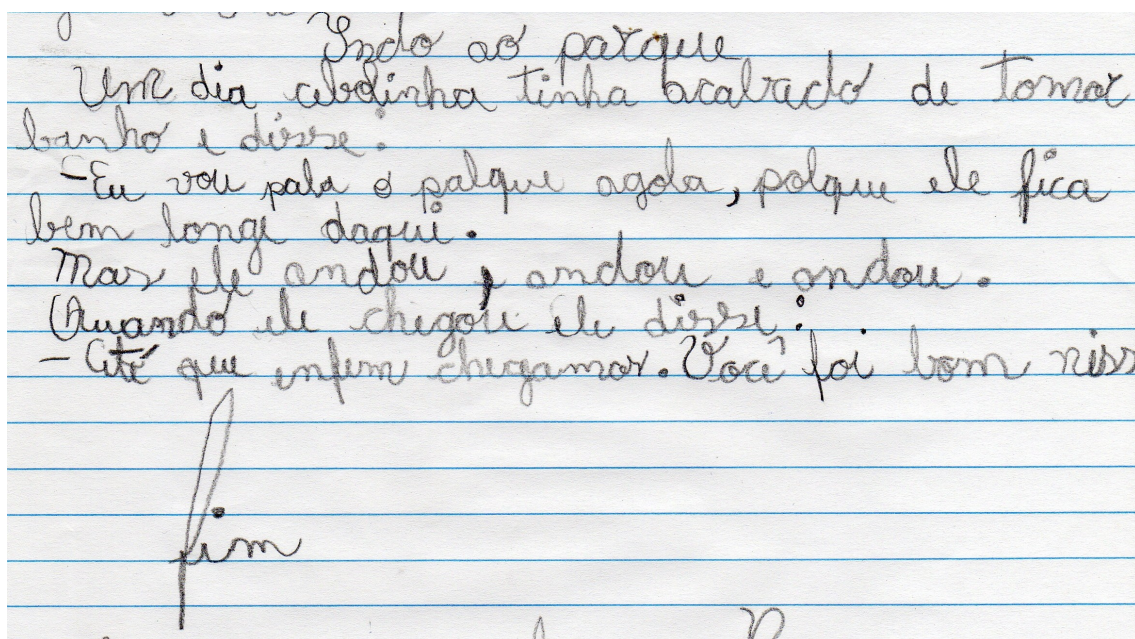 Indo ao parque
Um dia cebolinha tinha acabado de tomar
banho e disse:
-Eu vou pala o palque agola, polque ele fica
bem longe daqui.
Mas ele andou, andou e andou.
Quando ele chegou ele disse:
-Até que enfim chegamos. Você foi bom niss
fim